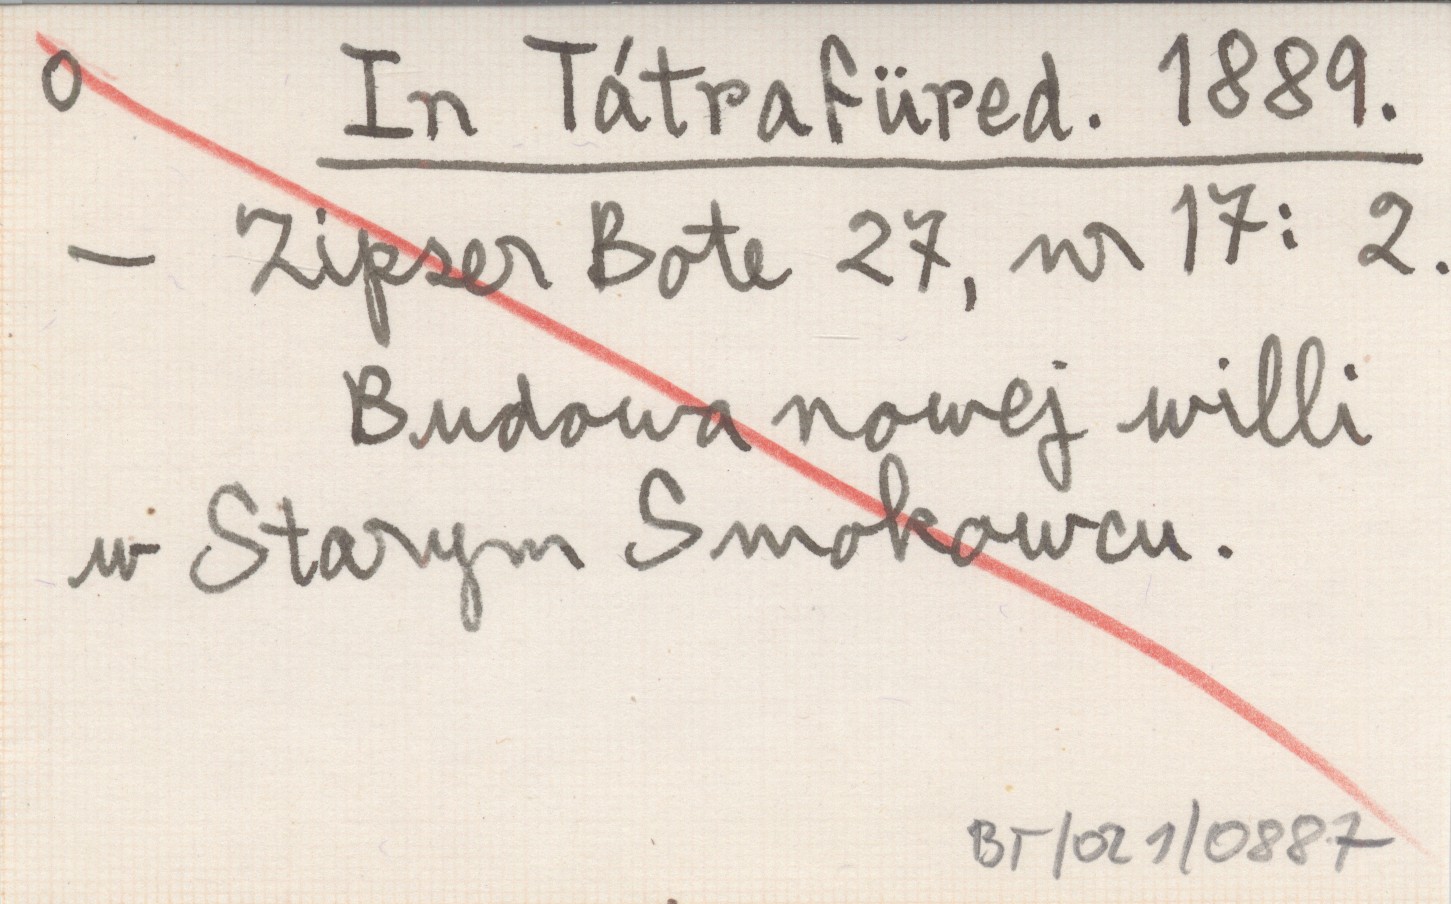 o In Tátrafüred. 1889.
— Zipser Bote 27, nr 17: 2.
Budowa nowej willi
w Starym Smokowcu.
BT/021/0887